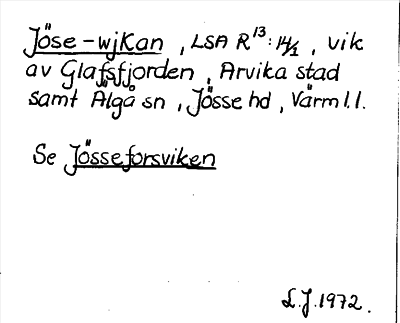 Jöse-wjKan, LSA R¹³:14/1, vik
av Glafsfjorden, Arvika stad
samt Älgå sn, Jösse hd, Värml.l.
Se Jösseforsviken
L.J.1972.